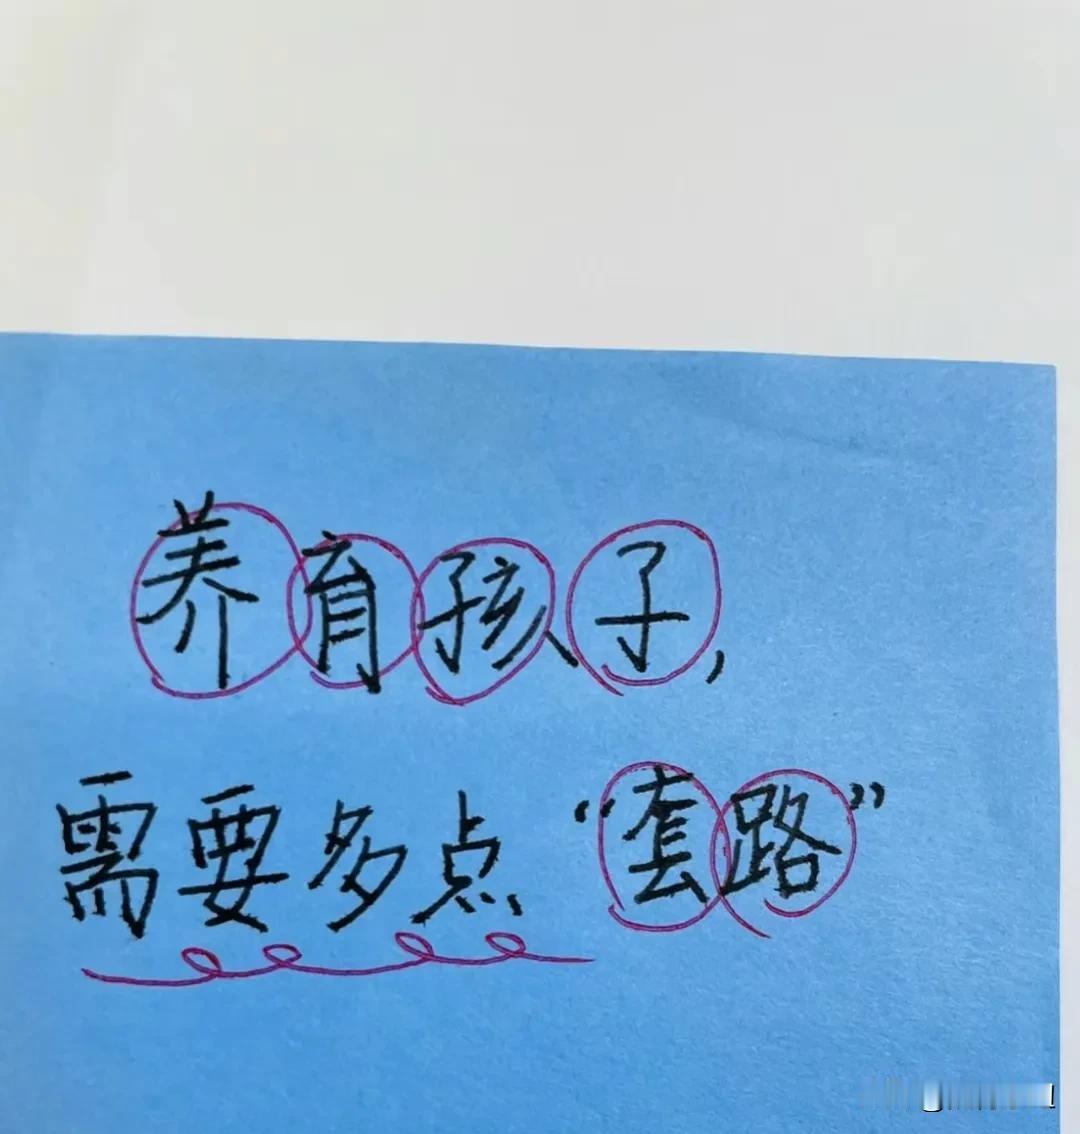 养育孩子,
需要多点“套路”